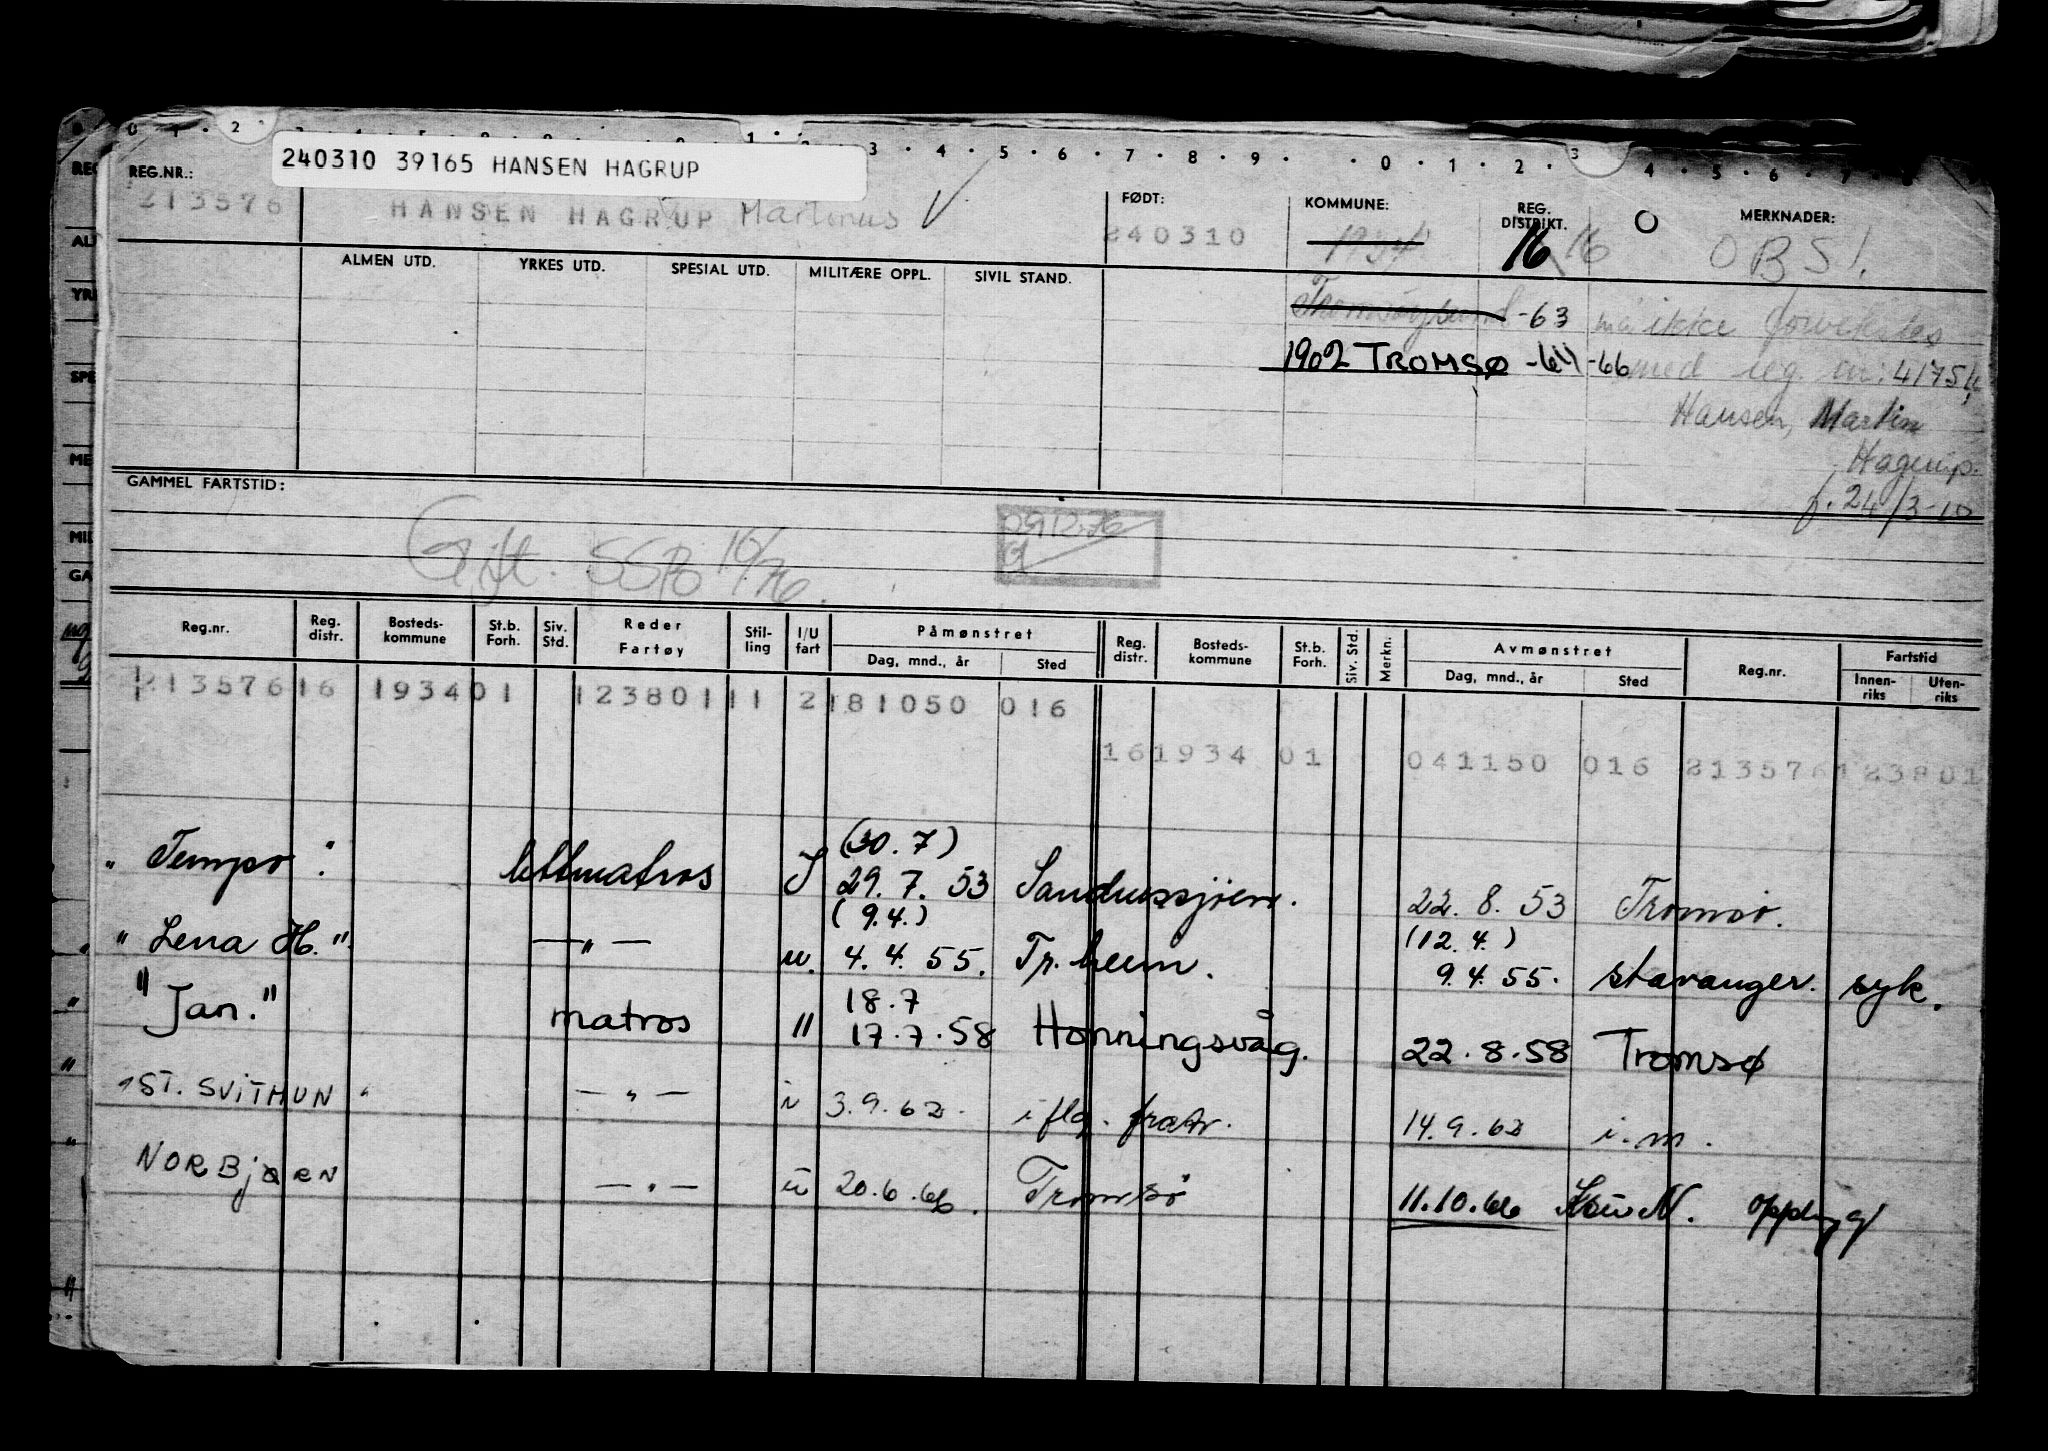 240310 39165 HANSEN HAGRUP
REG.NR.: FØDT: KOMMUNE: REG. DISTRIKT. MERKNADER:
213576 HANSEN HAGRUP Martinus 240310 1934 16 16 OBS!
ALMEN UTD. YRKES UTD. SPESIAL UTD. MILITÆRE OPPL. SIVIL STAND.
Tromsøysund -63 må ikke forveksles
1902 TROMSØ -64 -66 med reg. nr: 41754
Hansen, Martin
Hagerup.
f. 24/3-10
GAMMEL FARTSTID:
Gift. 10/76.
Reg.nr. Reg. distr. Bosteds-kommune St.b. Forh. Siv. Std. Reder Fartøy Stil-ling I/U fart Påmønstret Reg. distr. Bosteds-kommune St.b. Forh. Siv. Std. Merkn. Avmønstret Reg.nr. Fartstid
Dag, mnd., år Sted Dag, mnd., år Sted Innen-riks Uten-riks
213576 16 1934 01 123801 11 2 181050 016
16 1934 01 041150 016 213576 123801
(30.7)
"Tempo" lettmatros I 29.7.53 Sandnessjøen. 22.8.53 Tromsø.
(9.4.) (12.4.)
"Lena H." —"— u. 4.4.55. Tr.heim. 9.4.55. Stavanger. syk.
18.7
"Jan." matros " 17.7.58 Honningsvåg. 22.8.58 Tromsø
"ST. SVITHUN" —"— i 3.9.62. i flg. fratr. 14.9.62 i.m.
NORBJØRN —"— u 20.6.66. Tromsø 11.10.66